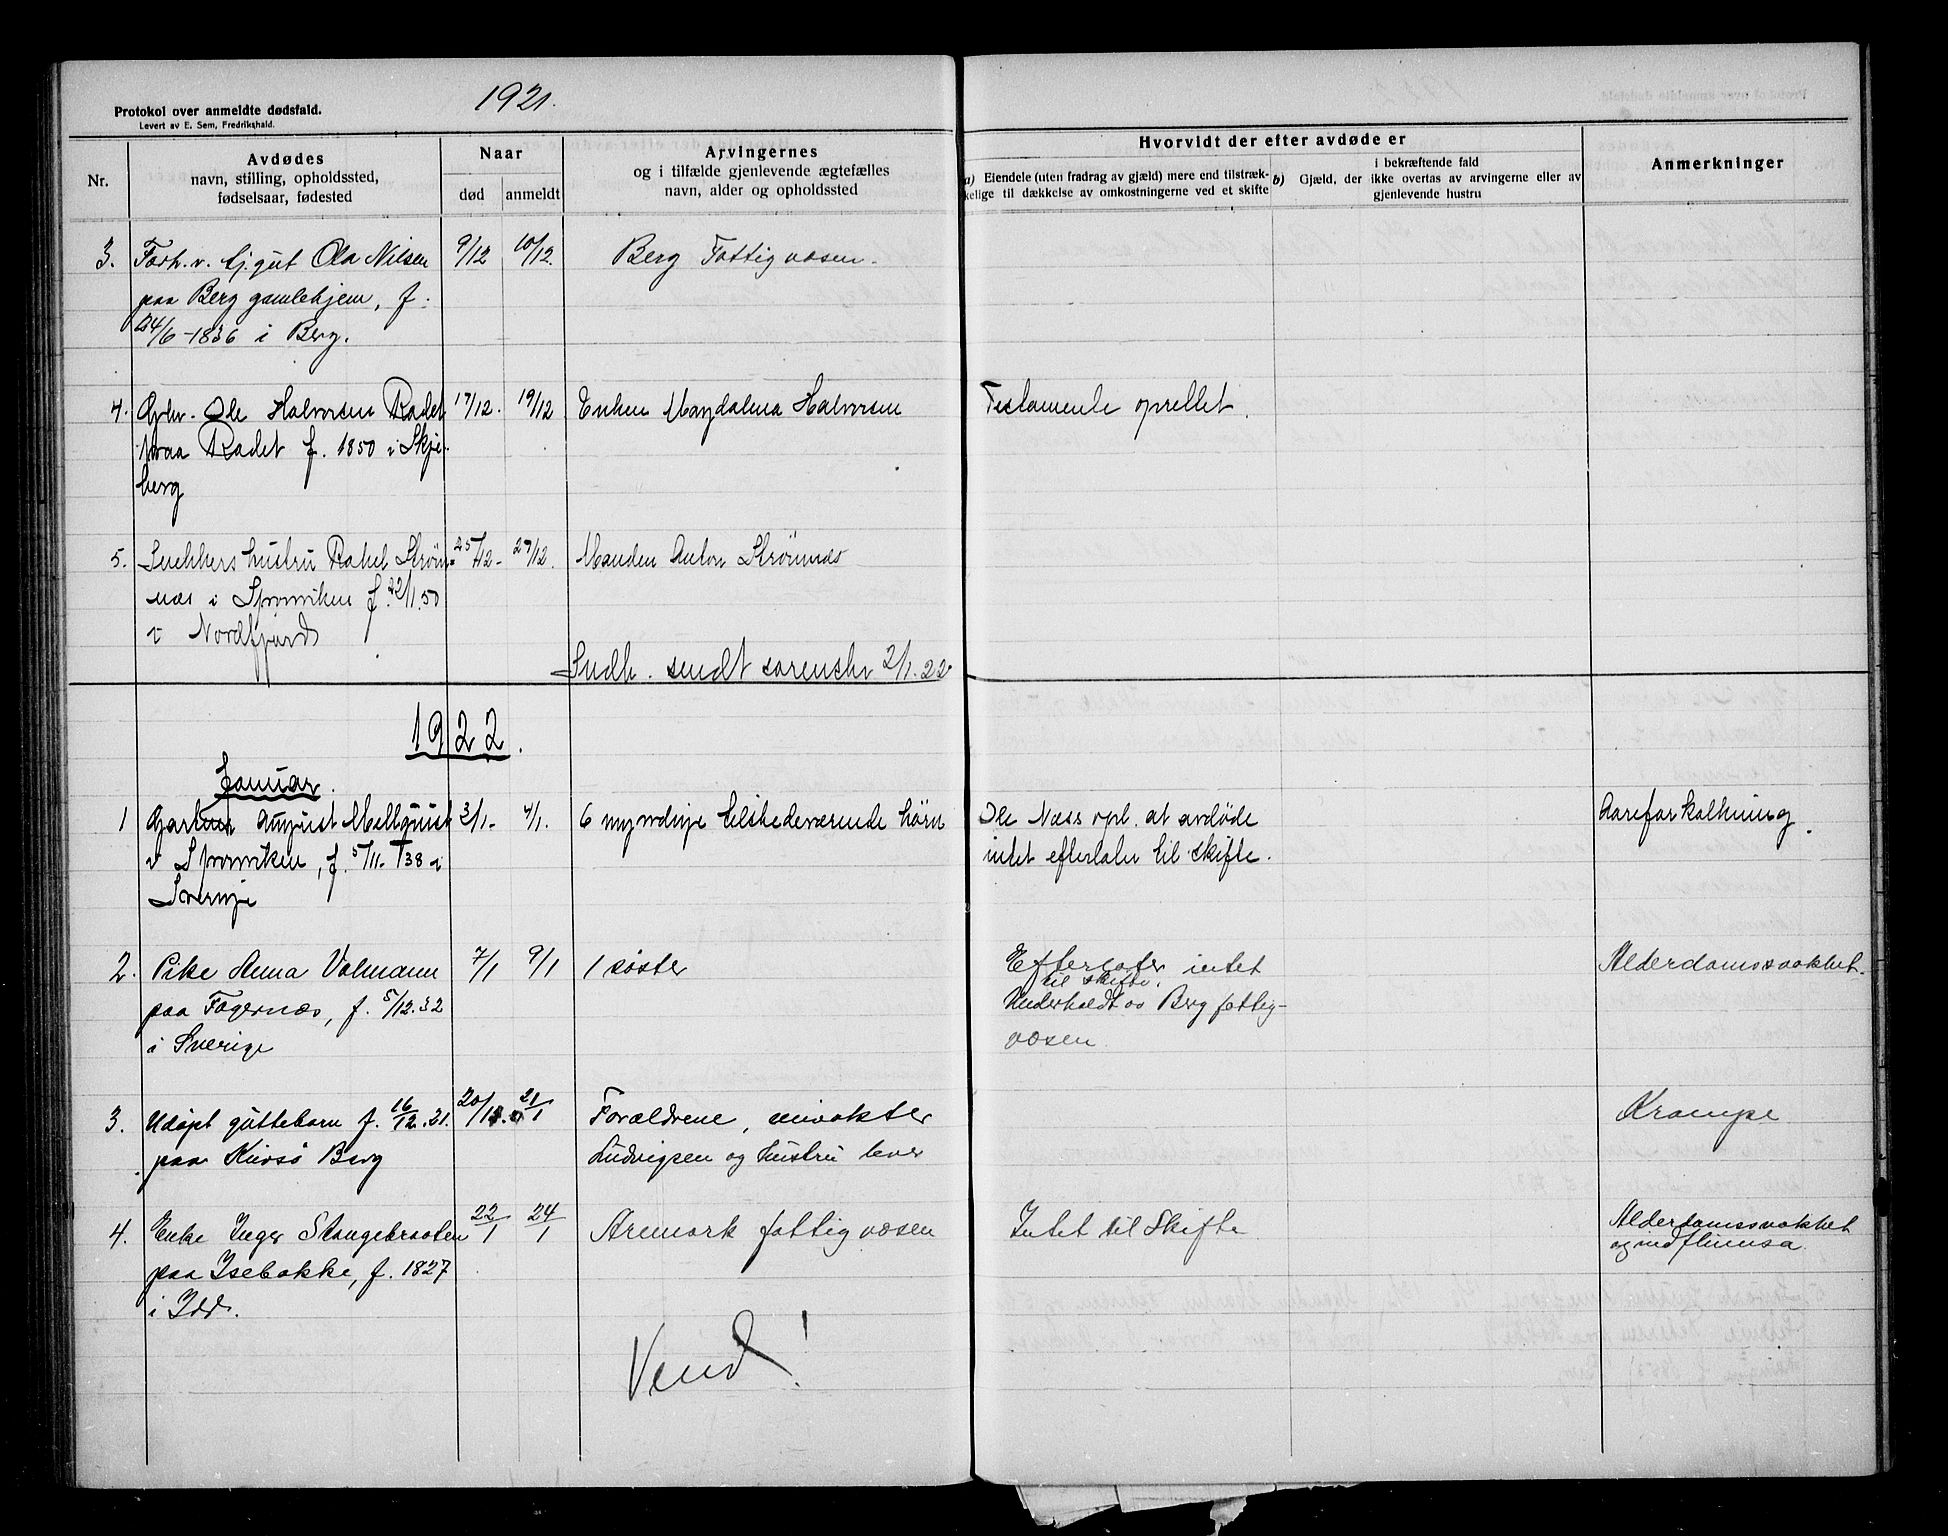 1921.
Protokol over anmeldte dødsfald.
Levert av E. Sem, Fredrikshald.
Nr.
Avdødes
navn, stilling, opholdssted,
fødselsaar, fødested
Naar
død
anmeldt
Arvingernes
og i tilfælde gjenlevende ægtefælles
navn, alder og opholdssted
Hvorvidt der efter avdøde er
a) Eiendele (uten fradrag av gjæld) mere end tilstræk-
kelige til dækkelse av omkostningerne ved et skifte
b) Gjæld, der
i bekræftende fald
ikke overtas av arvingerne eller av
gjenlevende hustru
Anmerkninger
3. Forh. v. Gj. gut Ola Nilsen 9/12 10/12. Berg Fattigvæsen.
paa Berg gamlehjem, f.
24/6-1836 i Berg.
4. Gbr. Ole Halvorsen Radet 17/12. 19/12 Enken Magdalena Halvorsen Testamente oprettet.
paa Radet f. 1850 i Skje-
berg
5. Snekkers hustru Rakel Strøm- 25/12- 27/12. Manden Anton Strømnæs
næs i Sponviken f. 22/1.50
i Nordfjord
Indb. sendt sorenskr 2/1.22
1922.
Januar.
1 August Mellquist 3/1- 4/1. 6 myndige tilstedeværende børn Ole Næss opl. at avdøde Aareforkalkning.
i Sponviken, f. 5/11-38 i intet efterlater til skifte.
Sverige
2. Pike Anna Valmann 7/1 9/1 1 søster Efterlater intet Alderdomssvakhet.
til skifte.
paa Fagernæs, f. 5/12.32 Underholdt av Berg fattig-
i Sverige væsen
3. Udøpt guttebarn f. 16/12.21. 20/1 21/1 Forældrene, Krampe
paa Berg Ludvigsen og hustru lever
4. Enke Inger Stangebraaten 22/1 24/1 Aremark fattigvæsen Intet til Skifte Alderdomssvakhet
og influensa
paa Isebakke, f. 1827
i Idd.
Vend!